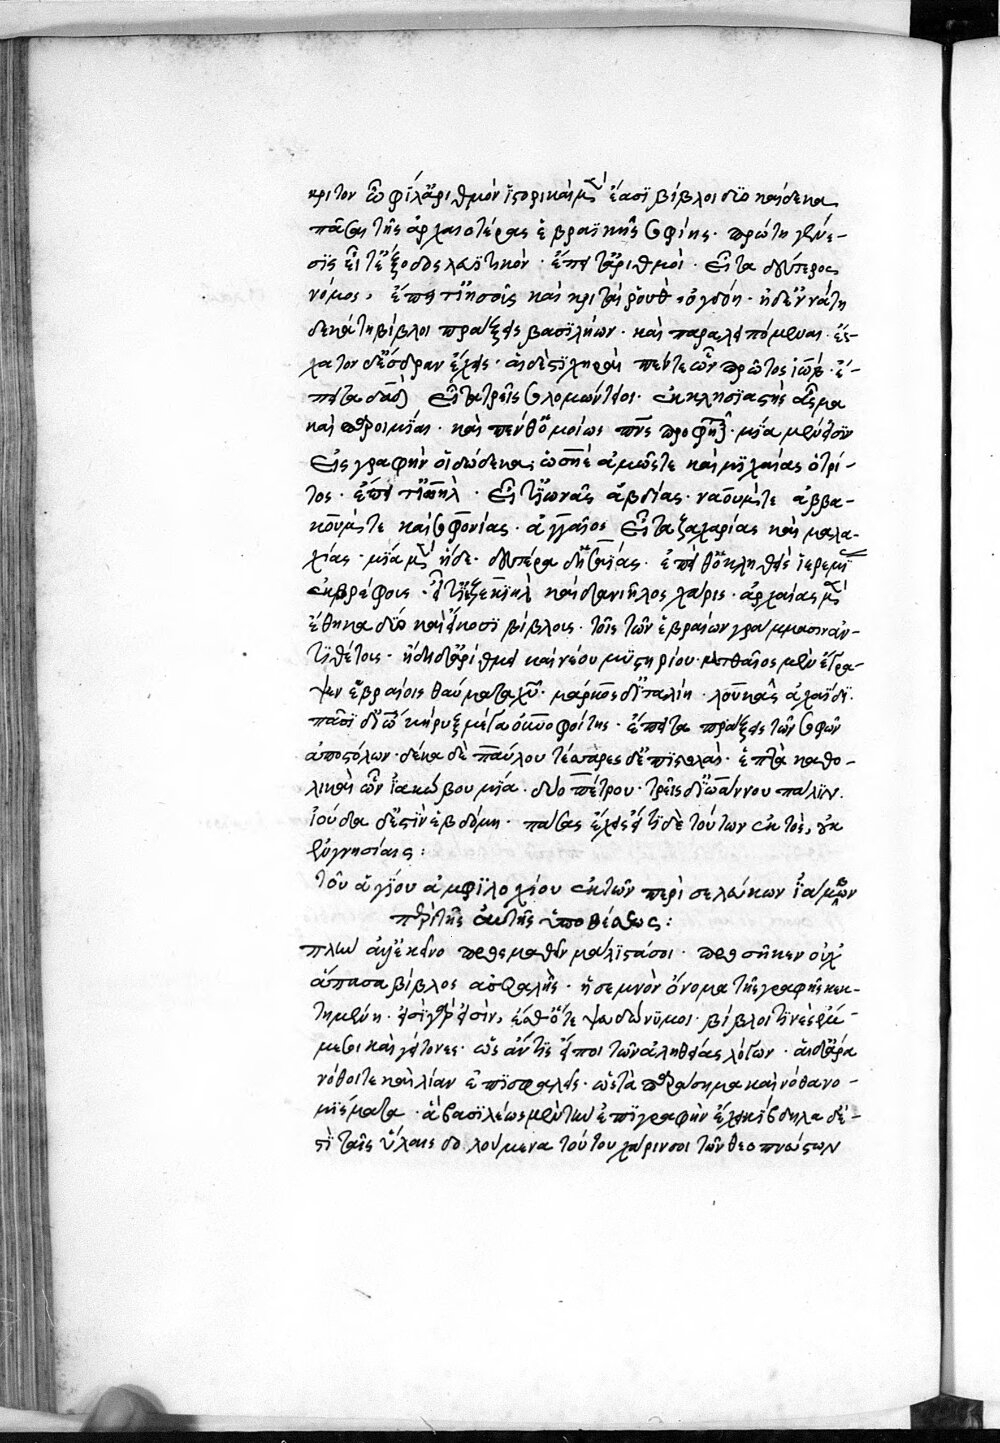 κριτον ὦ φίλ' ἀριθμόν ἱστορικαὶ μὲν ἔασι βίβλοι δύο καίδεκα
πᾶσαι τῆς ἀρχαιοτέρας ἑβραϊκῆς σοφίης · πρώτη γένε-
σις εἶτ' ἔξοδος λευϊτικόν · ἔπειτ' ἀριθμοὶ · εἶτα δεύτερος
νόμος, ἔπειτ' ἰησοῦς καὶ κριταὶ ῥοὺθ ὀγδόη · ἡ δ' ἐννάτη
δεκάτη βίβλοι πράξεις βασιλήων · καὶ παραλειπόμεναι · ἔς-
χατον δ' ἔσδραν ἔχεις · αἱ δὲ στιχηραὶ πέντε ὧν πρῶτος ἰώβ · ἔ-
πειτα δαδ εἶτα τρεῖς σολομώντειοι · ἐκκλησιαστὴς ἆσμα
καὶ παροιμίαι · καὶ πένθ' ὁμοίως πνς προφητ · μία μέν εἰσιν
εἰς γραφὴν οἱ δώδεκα, ὡσηὲ ἀμώς τε καὶ μιχαίας ὁ τρί-
τος · ἔπειτ' ἰωὴλ · εἶτ' ἰωνᾶς ἀβδίας · ναούμ τε ἀββα-
κούμ τε καὶ σοφονίας · ἀγγαῖος εἶτα ζαχαρίας καὶ μαλα-
χίας · μία μὲν ἥδε · δευτέρα δ' ἡσαΐας · ἔπειθ' ὁ κληθεὶς ἱερεμί
ἐκ βρέφους · εἶτ' ἰεζεκιὴλ καὶ δανιήλος χάρις · ἀρχαίας μὲν
ἔθηκα δύο καὶ εἴκοσι βίβλους · τοῖς τῶν ἑβραίων γράμμασιν ἀν-
τιθέτους · ἤδη δ' ἀρίθμει καὶ νέου μυστηρίου · ματθαῖος μὲν ἔγρα-
ψεν ἑβραίοις θαύματα χυ · μάρκος δ' ἰταλίη · λουκᾶς ἀχαΐδι
πᾶσι δ' ἰω κήρυξ μέγα οὐνοφοίτης · ἔπειτα πράξεις τῶν σοφῶν
ἀποστόλων · δέκα δὲ παύλου τέσσαρες δ' ἐπιστολαὶ · ἑπτὰ καθο-
λικαὶ ὧν ἰακώβου μία · δύο πέτρου · τρεῖς δ' ἰωάννου πάλιν.
ἰούδα δ' ἐστὶν ἑβδόμη · πάσας ἔχεις εἴ τι δὲ τούτων ἐκτός, οὐκ
ἐν γνησίαις :
τοῦ ἁγίου ἀμφιλοχίου ἐκ τῶν περὶ σελεύκων ἰάμβων
περὶ τῆς αὐτῆς ὑποθέσεως :
πλὴν ἀλλ' ἐκεῖνο προσμαθεῖν μάλιστά σοι · προσῆκεν οὐχ
ἅπασα βίβλος ἀσφαλὴς · ἡ σεμνὸν ὄνομα τῆς γραφῆς κεκ-
τημένη · εἰσὶ γὰρ εἰσὶν, ἔσθ' ὅτε ψευδώνυμοι · βίβλοι τινὲς ἔμ-
μεσοι καὶ γείτονες · ὡς ἄν τις εἴποι τῶν ἀληθείας λόγων · αἱ δ' ἄρα
νόθοι τε καὶ λίαν ἐπισφαλεῖς · ὥς τὰ παράσημα καὶ νόθα νο-
μίσματα · ἃ βασιλέως μὲν τὴν ἐπιγραφὴν ἔχει κίβδηλα δέ-
στὶ ταῖς ὕλαις δολούμενα τούτου χάριν σοι τῶν θεοπνεύστων